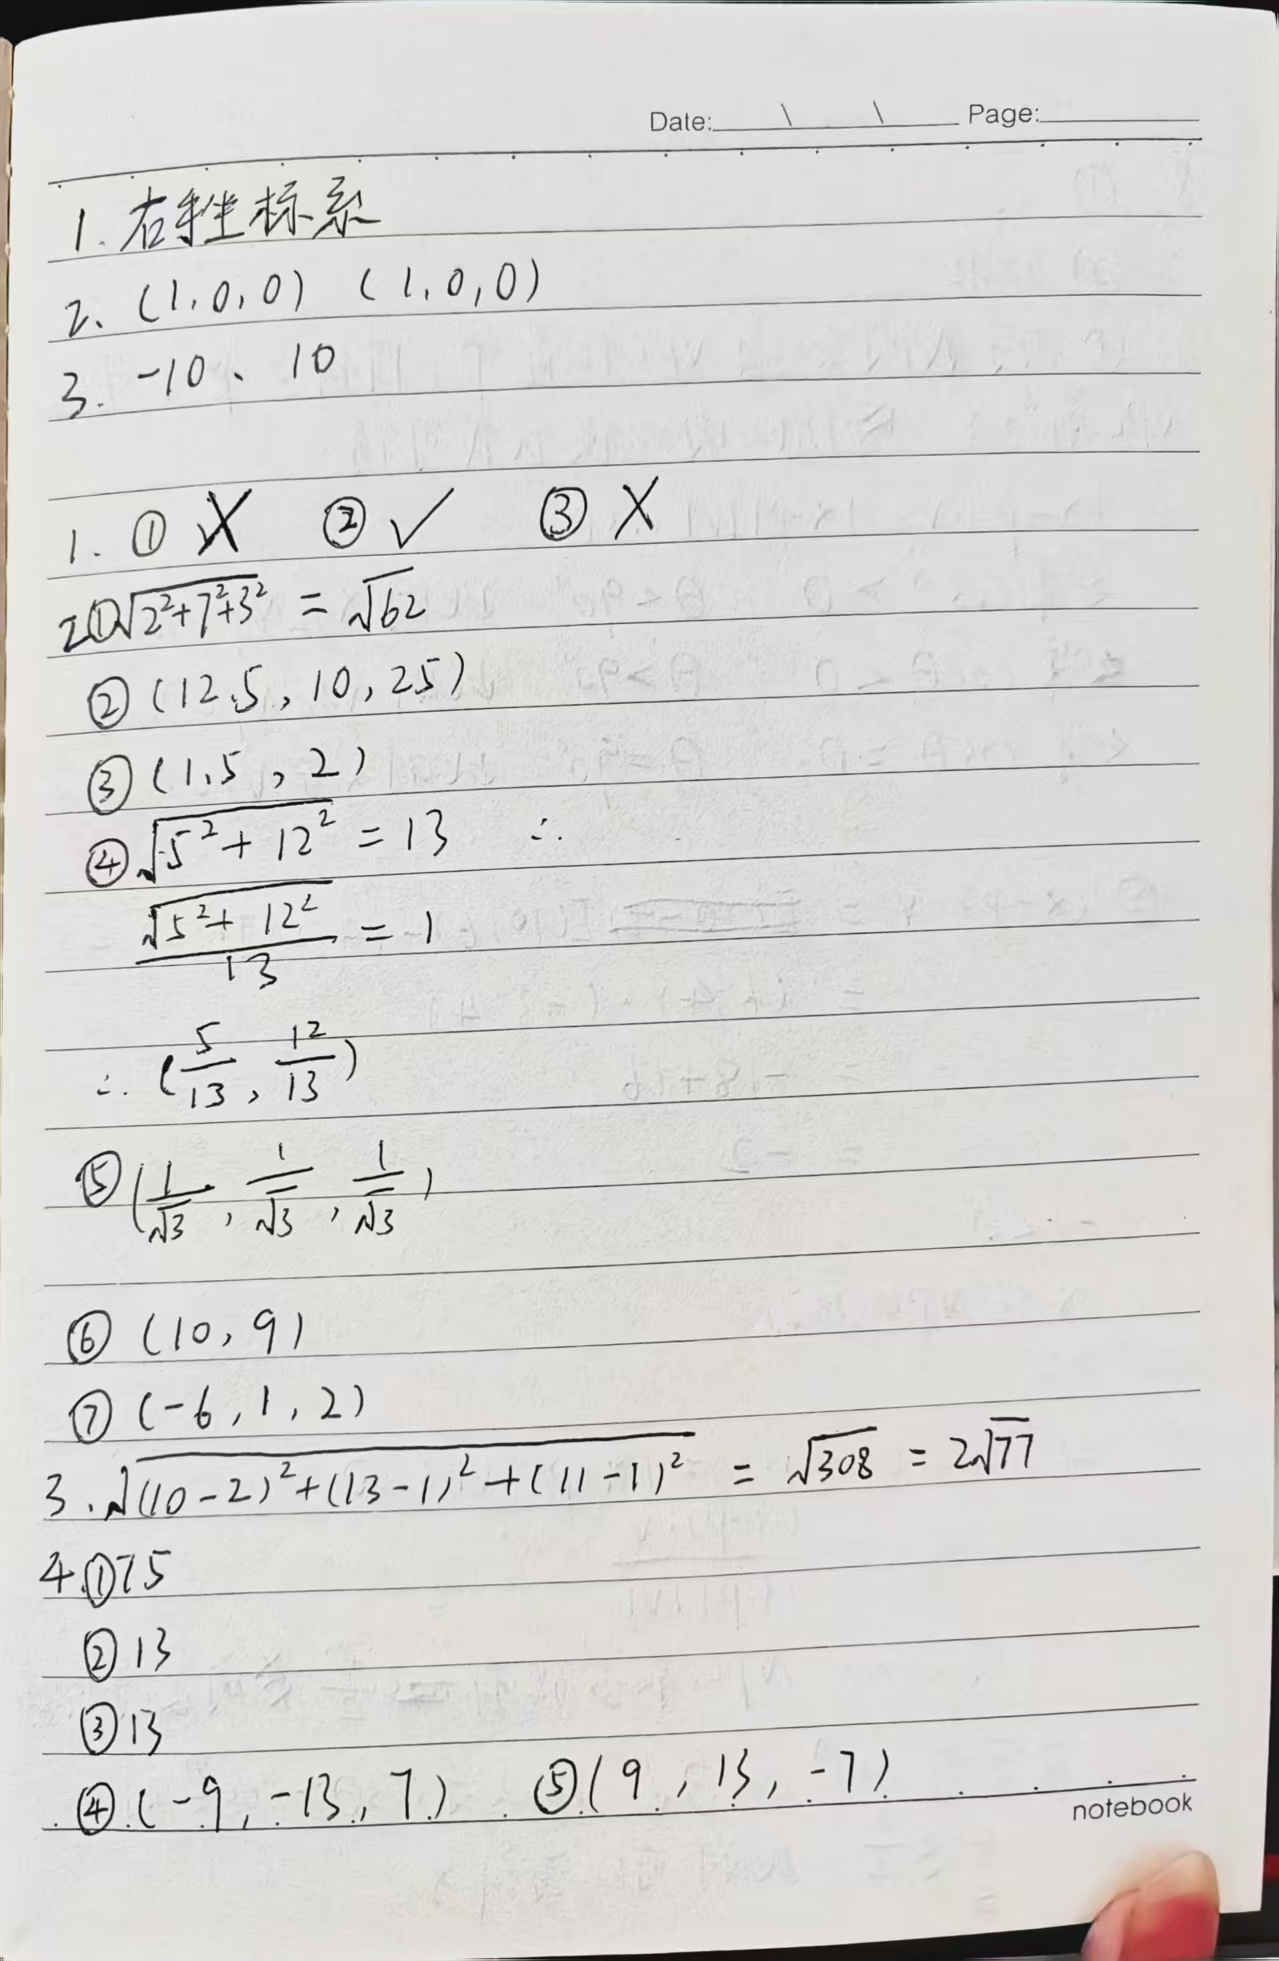 Date: \ \ Page:
1. 右手坐标系
2. (1,0,0) (1,0,0)
3. -10、10
1. ① X ② ✓ ③ X
2①√(2²+7²+3²) = √62
② (12.5, 10, 25)
③ (1.5, 2)
④ √(5²+12²) = 13 ∴
√(5²+12²)/13 = 1
∴ (5/13, 12/13)
⑤ (1/√3, 1/√3, 1/√3)
⑥ (10, 9)
⑦ (-6, 1, 2)
3. √((10-2)²+(13-1)²+(11-1)²) = √308 = 2√77
4.①75
② 13
③ 13
④ (-9, -13, 7) ⑤ (9, 13, -7)
notebook